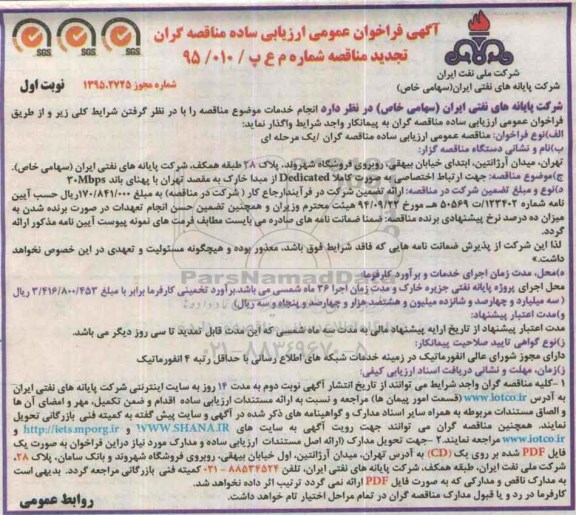 آگهی فراخوان عمومی ارزیابی ساده مناقصه گران
تجدید مناقصه شماره م ع پ / ۰۱۰/ ۹۵
SGS SGS SGS
شرکت ملی نفت ایران
شرکت پایانه های نفتی ایران(سهامی خاص)
شماره مجوز ۱۳۹۵.۲۷۲۵
نوبت اول
شرکت پایانه های نفتی ایران (سهامی خاص) در نظر دارد انجام خدمات موضوع مناقصه را با در نظر گرفتن شرایط کلی زیر و از طریق
فراخوان عمومی ارزیابی ساده مناقصه گران به پیمانکار واجد شرایط واگذار نماید:
الف)نوع فراخوان: مناقصه عمومی ارزیابی ساده مناقصه گران /یک مرحله ای
ب)نام و نشانی دستگاه مناقصه گزار:
تهران، میدان آرژانتین، ابتدای خیابان بیهقی، روبروی فروشگاه شهروند، پلاک ۲۸ طبقه همکف، شرکت پایانه های نفتی ایران (سهامی خاص).
ج)موضوع مناقصه: جهت ارتباط اختصاصی به صورت کاملا Dedicated از مبدا خارک به مقصد تهران با پهنای باند ۳۰Mbps
د)نوع و مبلغ تضمین شرکت در مناقصه: ارائه تضمین شرکت در فرآیندارجاع کار ( شرکت در مناقصه) به مبلغ ۱۷۰/۸۴۱/۰۰۰ریال حسب آیین
نامه شماره ۱۲۳۴۰۲/ت ۵۰۶۵۹ هـ مورخ ۹۴/۰۹/۲۲ هیئت محترم وزیران و همچنین تضمین حسن انجام تعهدات در صورت برنده شدن به
میزان ده درصد نرخ پیشنهادی برنده مناقصه: ضمنا ضمانت نامه های صادره می بایست مطابق فرمت های نمونه پیوست آیین نامه مذکور ارائه
گردد.
لذا این شرکت از پذیرش ضمانت نامه هایی که فاقد شرایط فوق باشد، معذور بوده و هیچگونه مسئولیت و تعهدی در این خصوص نخواهد
داشت.»
ه)محل، مدت زمان اجرای خدمات و برآورد کارفرما:
محل اجرای پروژه پایانه نفتی جزیره خارک و مدت زمان اجرا ۳۶ ماه شمسی می باشد.برآورد تخمینی کارفرما برابر با مبلغ ۳/۴۱۶/۸۰۰/۴۵۳ ریال
( سه میلیارد و چهارصد و شانزده میلیون و هشتصد هزار و چهارصد و پنجاه و سه ریال)
و)مدت اعتبار پیشنهاد:
مدت اعتبار پیشنهاد از تاریخ ارایه پیشنهاد مالی به مدت سه ماه شمسی که این مدت قابل تمدید تا سی روز دیگر می باشد.
ز)نوع گواهی تایید صلاحیت پیمانکار:
دارای مجوز شورای عالی انفورماتیک در زمینه خدمات شبکه های اطلاع رسانی با حداقل رتبه ۴ انفورماتیک
ژ)زمان، مهلت و نشانی دریافت اسناد ارزیابی کیفی:
۱-کلیه مناقصه گران واجد شرایط می توانند از تاریخ انتشار آگهی نوبت دوم به مدت ۱۴ روز به سایت اینترنتی شرکت پایانه های نفتی ایران
به آدرس www.iotco.ir (قسمت امور پیمان ها) مراجعه و نسبت به ارائه مستندات ارزیابی ساده اقدام و ضمن تکمیل، مهر و امضای آن ها
و الصاق مستندات مربوطه به همراه سایر اسناد مدارک و گواهینامه های ذکر شده در آگهی و سایت پیش گفته به کمیته فنی بازرگانی تحویل
نمایند. همچنین مناقصه گران می توانند جهت رویت آگهی به سایت های WWW.SHANA.IR و http://iets.mporg.ir و
www.iotco.ir مراجعه نمایند.۲ -جهت تحویل مدارک (ارائه اصل مستندات ارزیابی ساده و مدارک مورد نیاز دراین فراخوان به صورت یک
فایل PDF شده بر روی یک (CD) به آدرس تهران، میدان آرژانتین، اول خیابان بیهقی، روبروی فروشگاه شهروند و بانک سامان، پلاک ۲۸،
شرکت ملی نفت ایران، طبقه همکف، شرکت پایانه های نفتی ایران، تلفن ۸۸۵۳۴۵۲۴ - ۰۲۱ کمیته فنی بازرگانی مراجعه گردد. بدیهی است
به مدارک ناقص و مدارکی که به صورت فایل PDF ارائه نمی گردد ترتیب اثر داده نخواهد شد.
کارفرما در رد و یا قبول مدارک مناقصه گران در تمام مراحل اختیار تام خواهد داشت.
روابط عمومی
ParsNamadData
۰۲۱-۸۸۳۴۹۶۷۰-۵